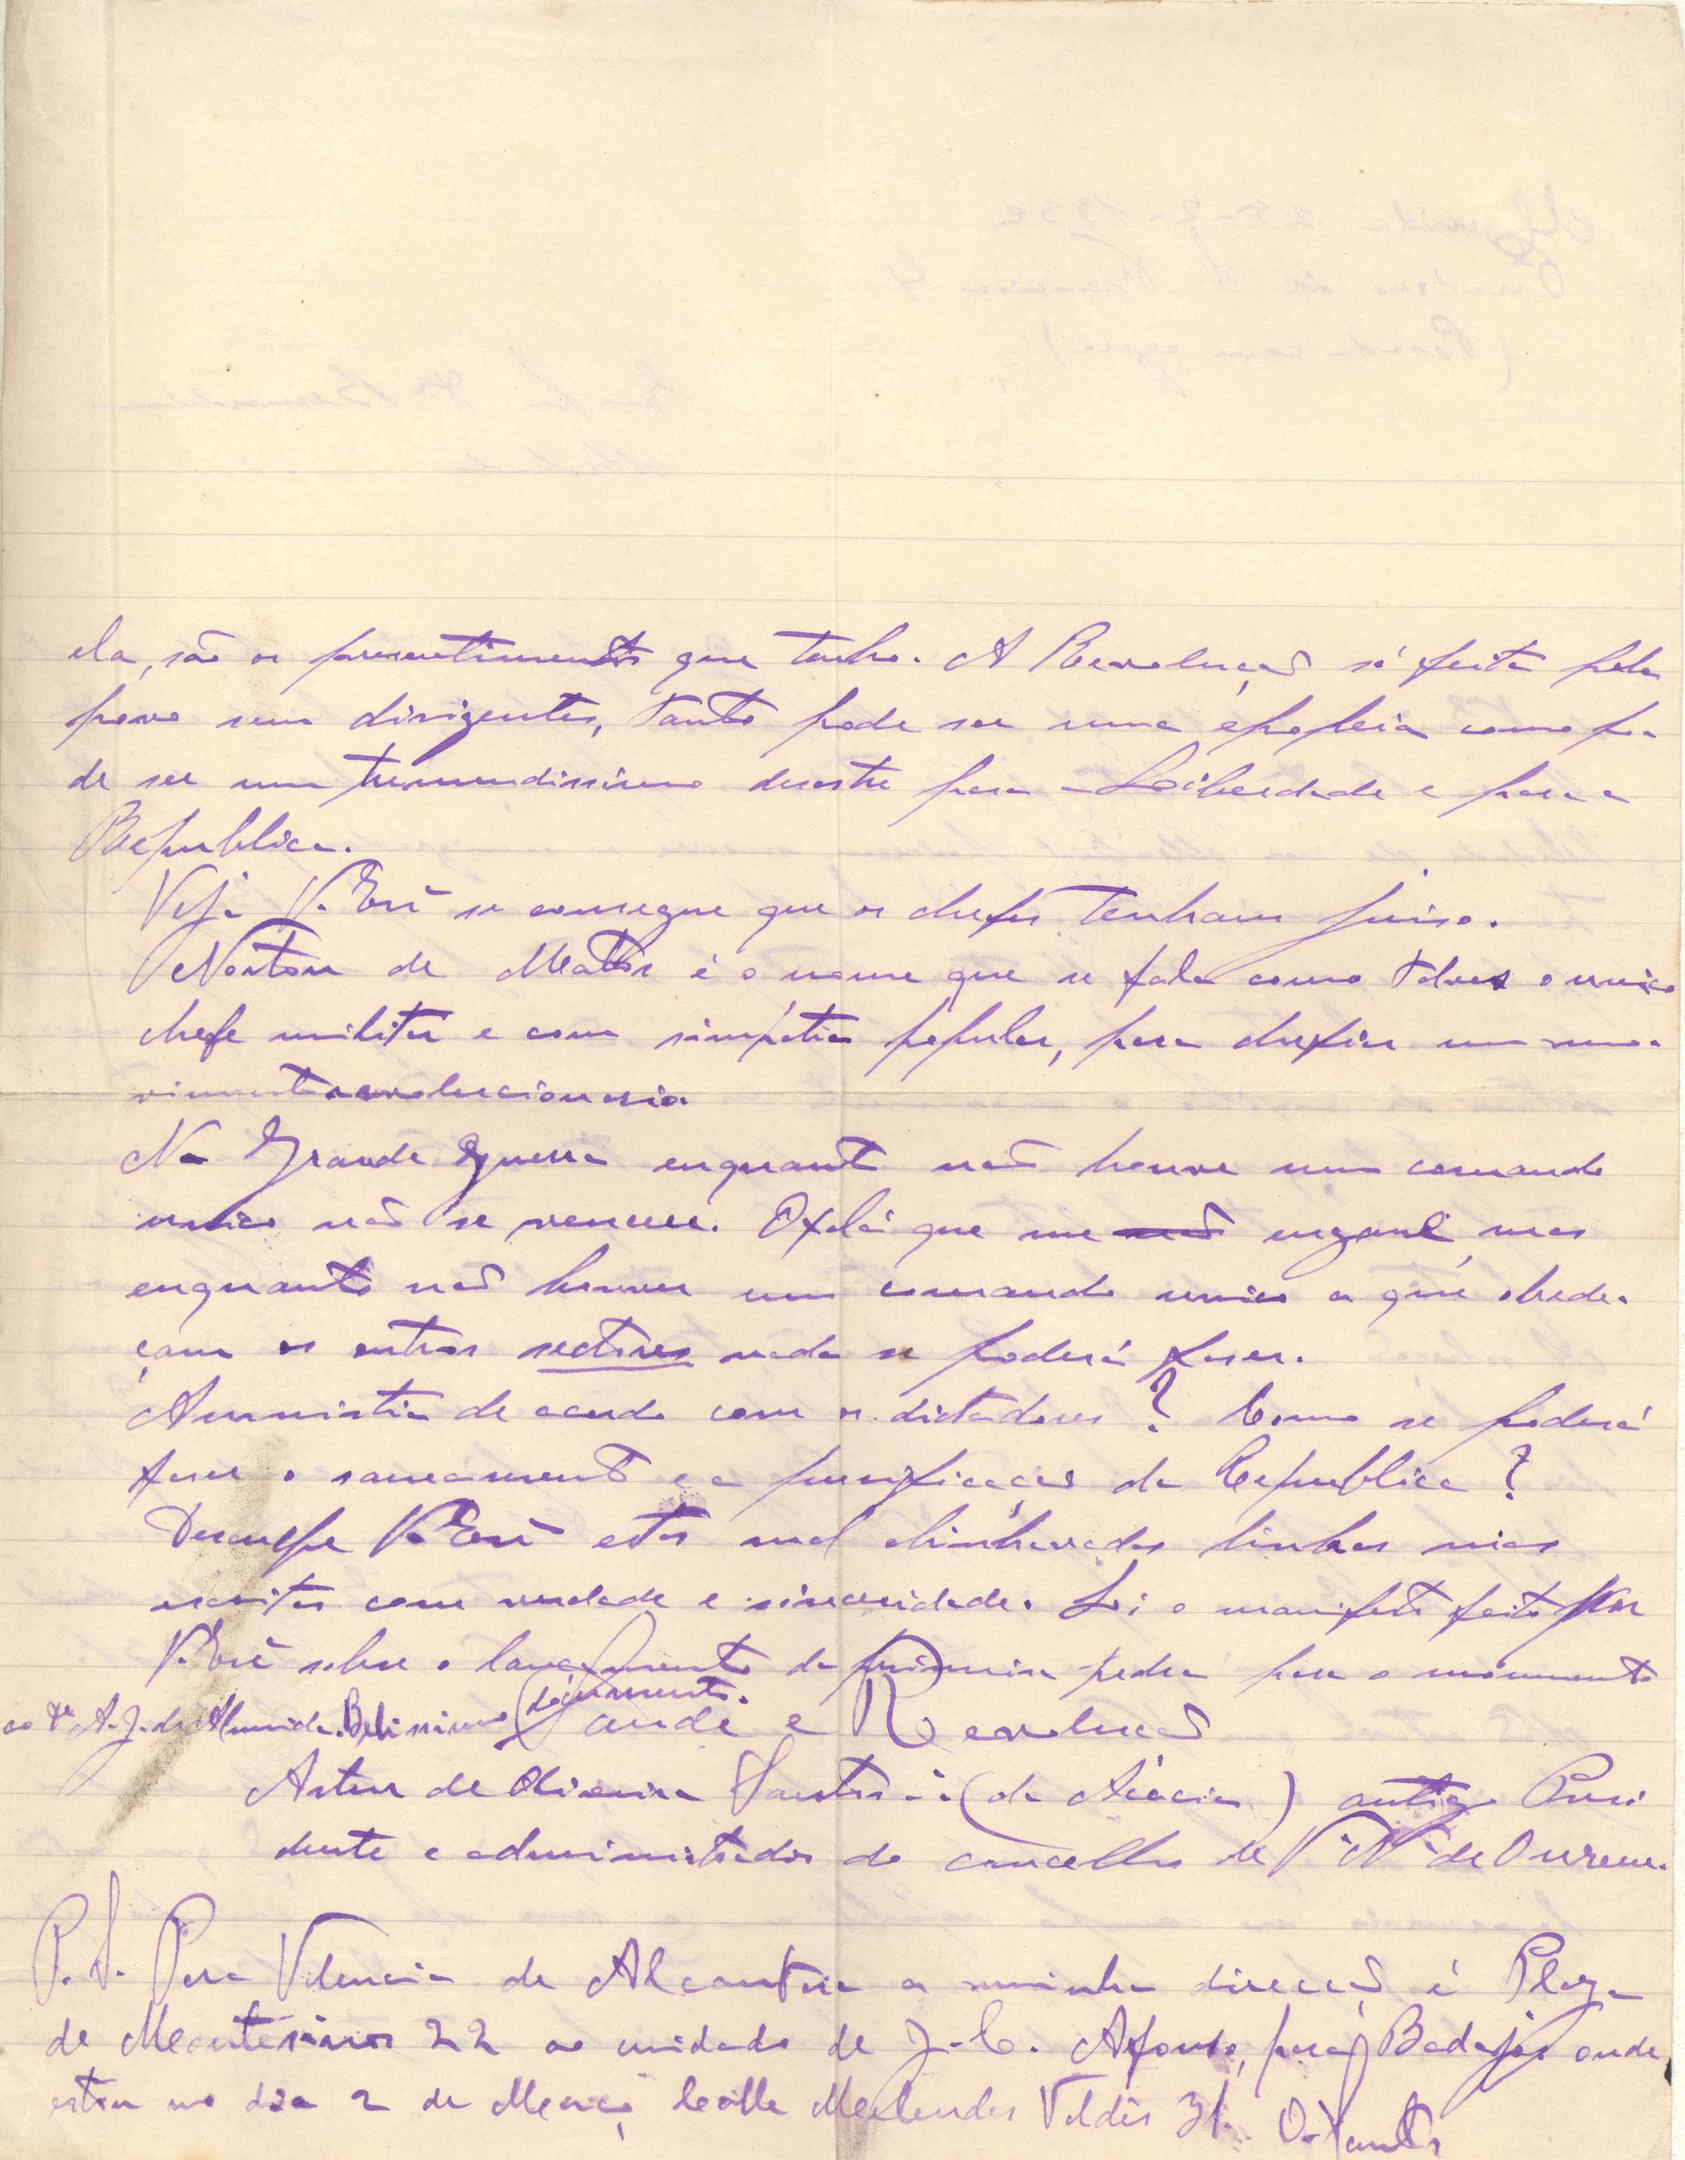 ela, são os pressentimentos que tenho. A Revolução só feita pelo
povo sem dirigentes, tanto pode ser uma epopeia como po-
de ser um tremendissimo desastre para a Liberdade e para a
Republica.
Veja V. Exª se consegue que os chefes tenham juiso.
Norton de Matos é o nome que se fala como talvez o unico
chefe militar e com simpatia popular, para chefiar um mo-
vimento revolucionario.
Na Grande Guerra enquanto não houve um comando
unico não se venceu. Oxalá que me não engane, mas
enquanto não houver um comando unico a que obede-
çam os outros sectores nada se poderá faser.
Amnistia de acordo com os dictadores? Como se poderá
faser o saneamento e a purificação da Republica?
Desculpe V. Exª estas mal alinhavadas linhas mas
escritas com verdade e sinceridade. Li o manifesto feito por
V. Exª sobre o lançamento da primeira pedra para o monumento
ao Dr A. J. de Almeida. Belissimo documento.
Saude e Revolução
Artur de Oliveira Santos (da Acácia) antigo Presi
dente e administrador do concelho de V. N. de Ourem.
P. S. Para Valencia de Alcantara a minha direcção é Plaza
de Montesinos 22 ao cuidado de J. C. Afonso, para Badajos onde
estou no dia 2 de Março Calle Melendes Valdés 31. O. Santos